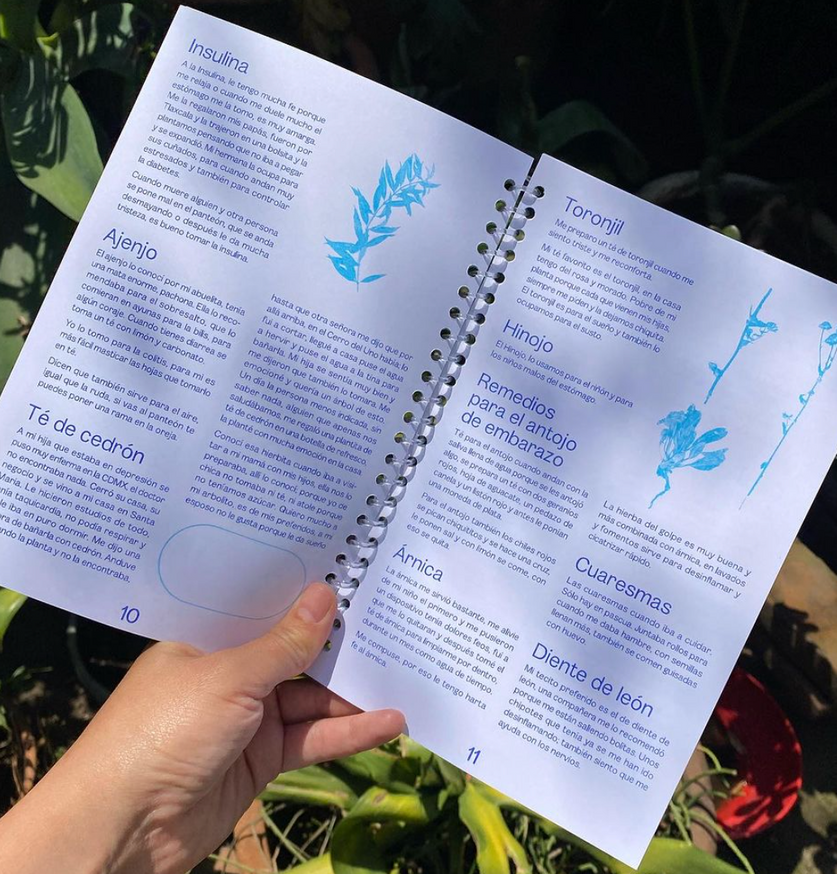 Insulina
A la Insulina, le tengo mucha fe porque
me relaja o cuando me duele mucho el
estómago me la tomo, es muy amarga.
Me la regalaron mis papás, fueron por
Tlaxcala y la trajeron en una bolsita y la
plantamos pensando que no iba a pegar
y se expandió. Mi hermana la ocupa para
sus cuñados, para cuando andan muy
estresados y también para controlar
la diabetes.
Cuando muere alguien y otra persona
se pone mal en el panteón, que se anda
desmayando o después le da mucha
tristeza, es bueno tomar la insulina.
Ajenjo
El ajenjo lo conocí por mi abuelita, tenía
una mata enorme, pachona. Ella lo reco-
mendaba para el sobresalto, que lo
comieran en ayunas para la bilis, para
algún coraje. Cuando tienes diarrea se
toma un té con limón y carbonato.
Yo lo tomo para la colitis, para mi es
más fácil masticar las hojas que tomarlo
en té.
Dicen que también sirve para el aire,
igual que la ruda, si vas al panteón te
puedes poner una rama en la oreja.
Té de cedrón
A mi hija que estaba en depresión se
puso muy enferma en la CDMX, el doctor
no encontraba nada. Cerró su casa, su
negocio y se vino a mi casa en Santa
María. Le hicieron estudios de todo,
tenía taquicardia, no podía respirar y
le iba en puro dormir. Me dijo una
de bañarla con cedrón. Anduve
buscando la planta y no la encontraba,
hasta que otra señora me dijo que por
allá arriba, en el Cerro del Uno había, lo
fui a cortar, llegué a casa puse el agua
a hervir y puse el agua a la tina para
bañarla. Mi hija se sentía muy bien y
me dijeron que también lo tomara. Me
emocioné y quería un árbol de esto.
Un día la persona menos indicada, sin
saber nada, alguien que apenas nos
saludábamos, me regaló una plantita de
té de cedrón en una botella de refresco,
la planté con mucha emoción en la casa.
Conocí esa hierbita cuando iba a visi-
tar a mi mamá con mis hijos, ella nos lo
preparaba, allí lo conocí, porque yo de
chica no tomaba ni té, ni atole porque
no teníamos azúcar. Quiero mucho a
mi arbolito, es de mis preferidos, a mi
esposo no le gusta porque le da sueño
10
Toronjil
Me preparo un té de toronjil cuando me
siento triste y me reconforta.
Mi té favorito es el toronjil, en la casa
tengo del rosa y morado. Pobre de mi
planta porque cada que vienen mis hijas,
siempre me piden y la dejamos chiquita.
El toronjil es para el sueño y también lo
ocupamos para el susto.
Hinojo
El Hinojo, lo usamos para el riñón y para
los niños malos del estómago.
Remedios
para el antojo
de embarazo
Té para el antojo cuando andan con la
saliva llena de agua porque se les antojó
algo, se prepara un té con dos geranios
rojos, hoja de aguacate, un pedazo de
canela y un listón rojo y antes le ponían
una moneda de plata.
Para el antojo también los chiles rojos
se pican chiquitos y se hace una cruz,
le ponen sal y con limón se come, con
eso se quita.
Árnica
La árnica me sirvió bastante, me alivié
de mi niño el primero y me pusieron
un dispositivo tenía dolores feos, fui a
que me lo quitaran y después tomé el
té de árnica para limpiarme por dentro,
durante un mes como agua de tiempo.
Me compuse, por eso le tengo harta
fe al árnica.
La hierba del golpe es muy buena y
más combinada con árnica, en lavados
y fomentos sirve para desinflamar y
cicatrizar rápido.
Cuaresmas
Las cuaresmas cuando iba a cuidar.
Sólo hay en pascua. Juntaba rollos para
cuando me daba hambre, con semillas
llenan más, también se comen guisadas
con huevo.
Diente de león
Mi tecito preferido es el de diente de
león, una compañera me lo recomendó
porque me están saliendo bolitas. Unos
chipotes que tenía ya se me han ido
desinflamando, también siento que me
ayuda con los nervios.
11